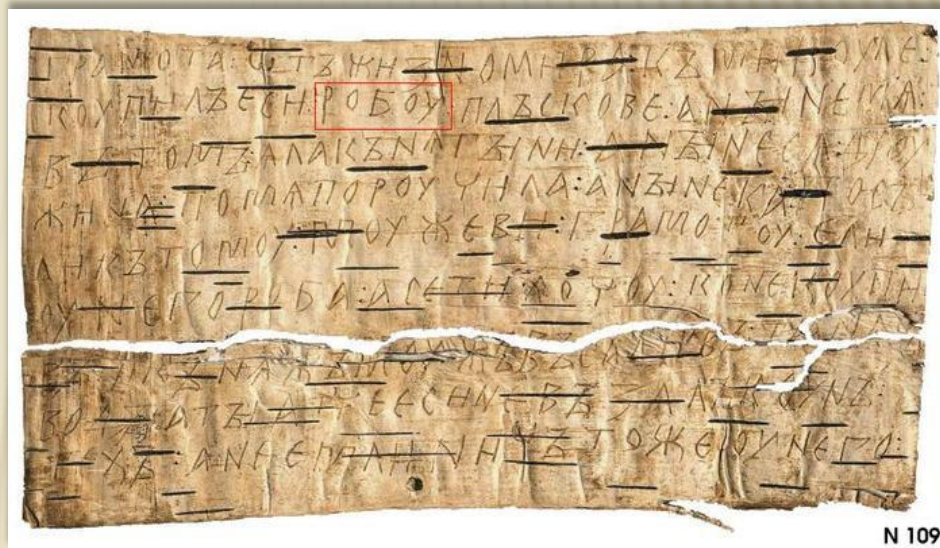 ГРАМОТА : ѠТЪ ЖИЗНОМИРА КЪ МИКОУЛЕ :
КОУПИЛЪ ЕСИ : РОБОУ ПЛЪСКОВЕ : А НЪІНЕ МѦ :
ВЪ ТОМЪ : АЛА КЪНѦГЪІНИ : А НЪІНЕ СѦ ДРОУ
ЖИНА : ПО МѦ ПОРОУЧИЛА : А НЪІНЕ КА : ПОСЪ
ЛИ КЪ ТОМОУ : МОУЖЕВИ : ГРАМОТОУ : ЕЛИ
ОУ НЕГО РОБА : А СЕ ТИ ХОЧОУ : КОНЕ КОУПИ
ВЪ : И КЪНѦЖЪ МОУЖЪ ВЪСАДИВЪ : ТА НА СЪ
ВОДЪІ : А ТЪІ АТЧЕ ЕСИ НЕ ВЪЗАЛЪ КОУНЪ :
ТЕХЪ : А НЕ ЕМЛИ : НИЧЪТО ЖЕ ОУ НЕГО :
N 109